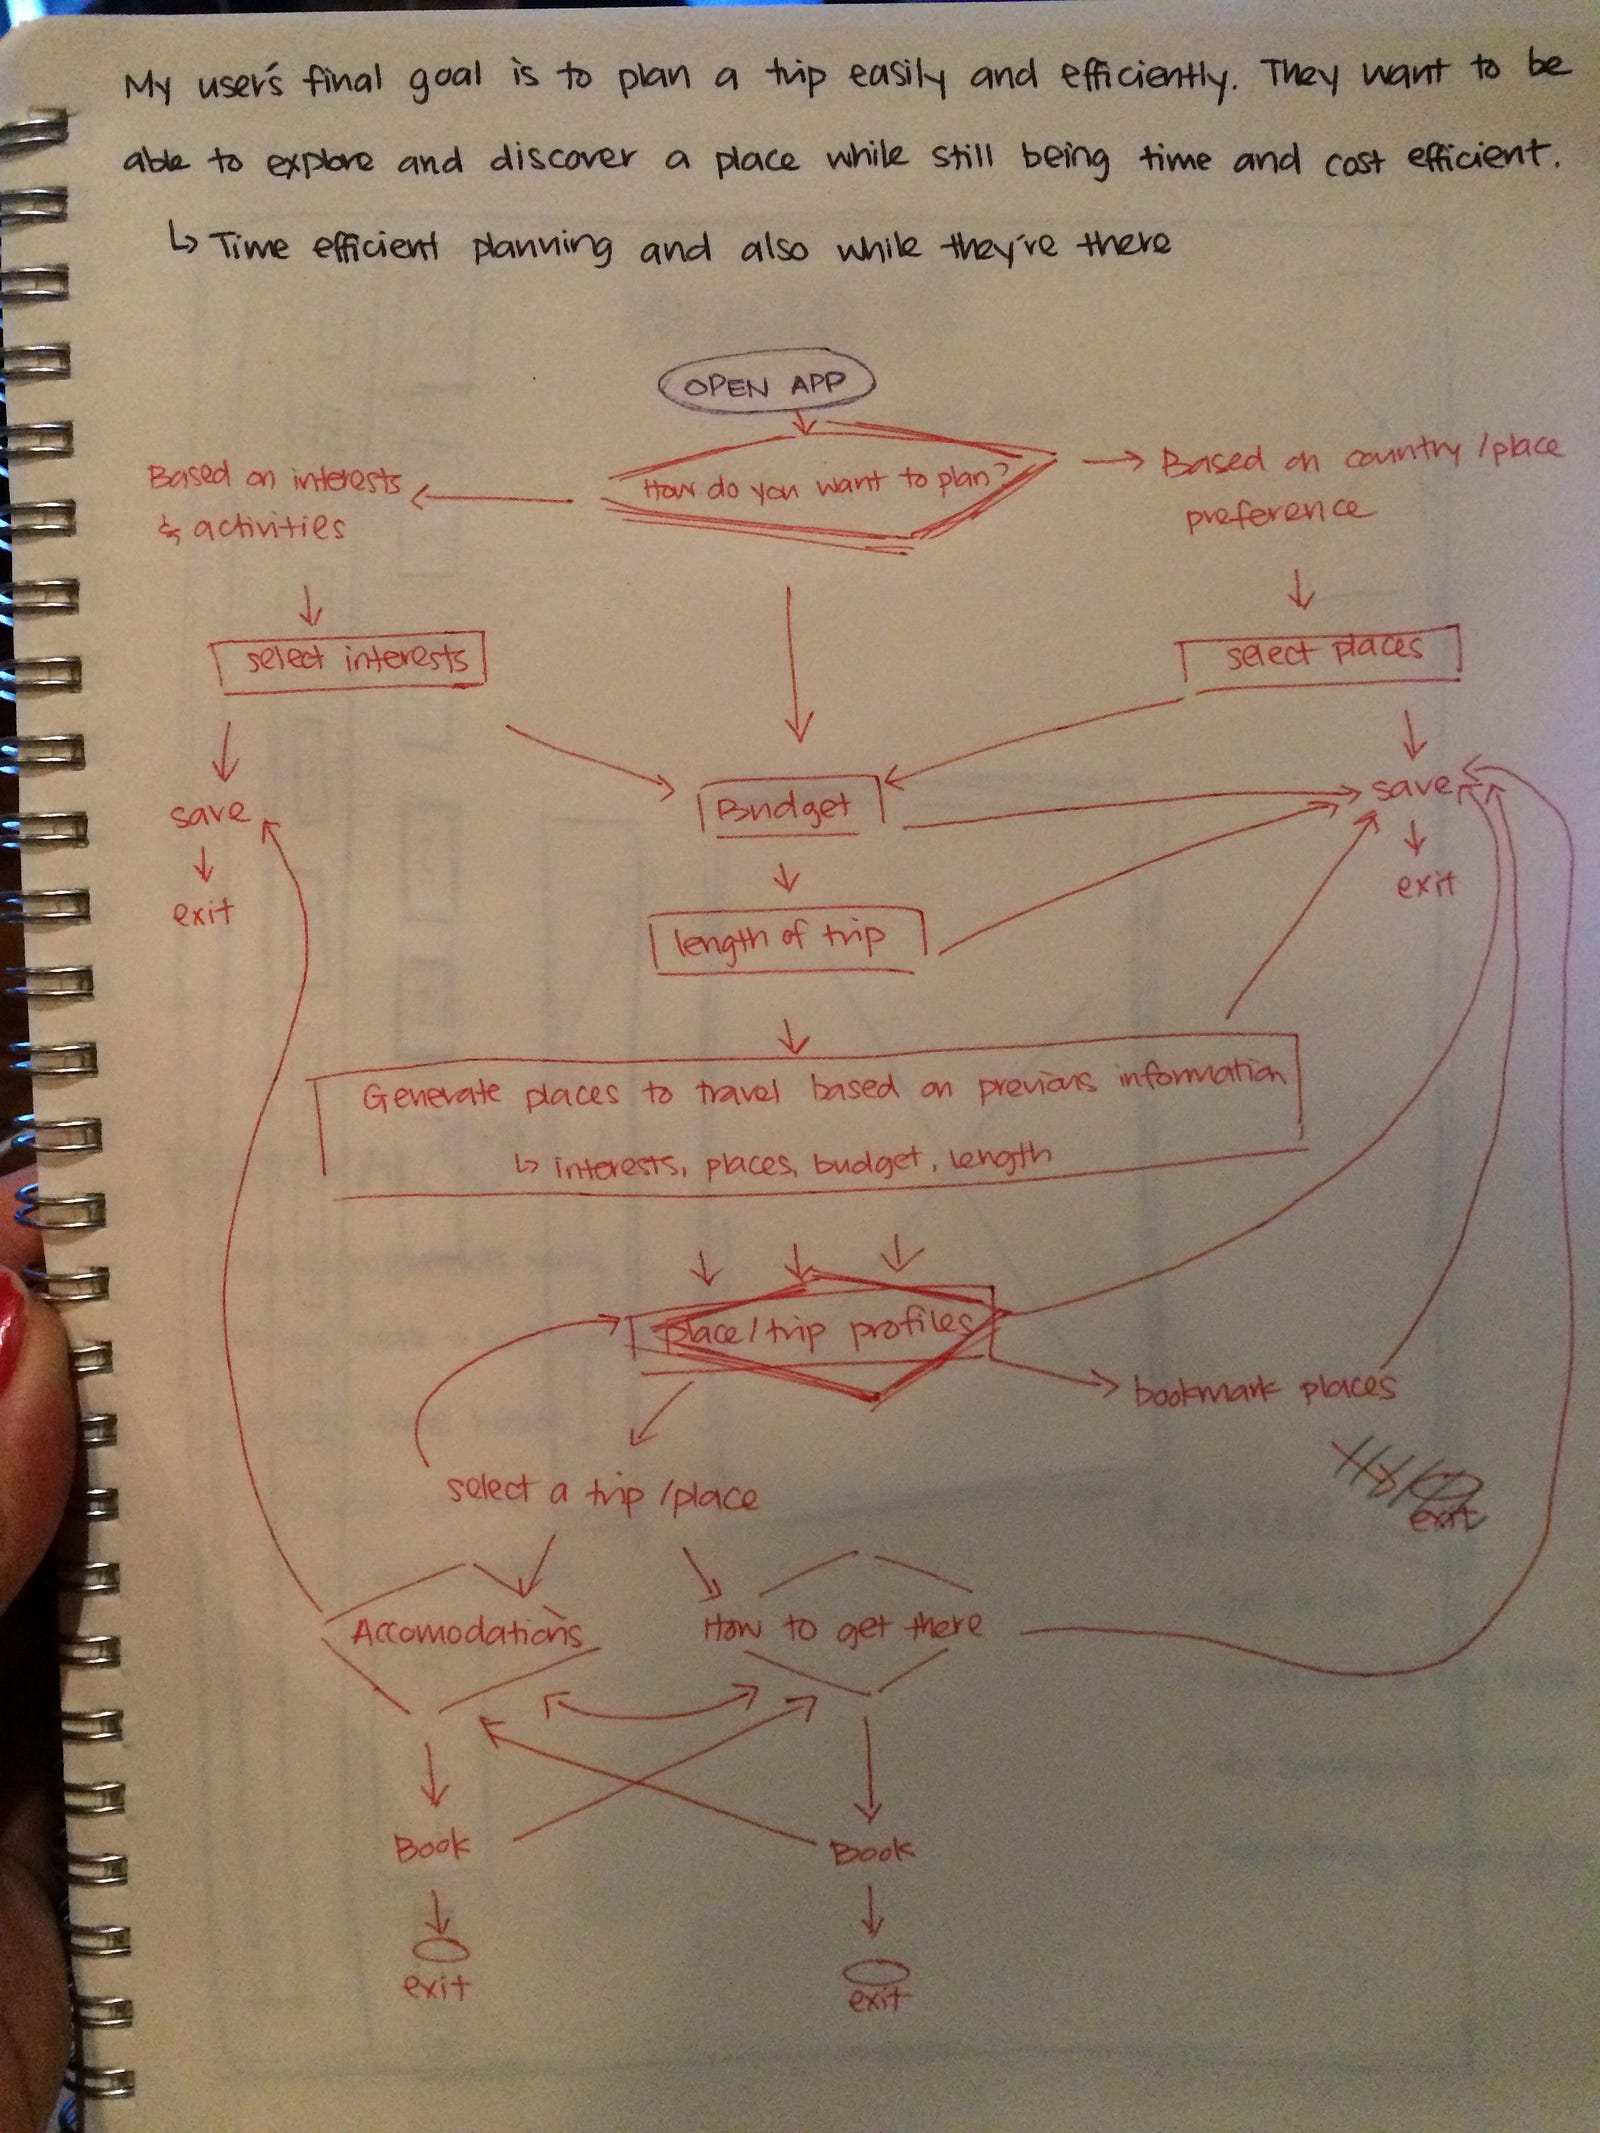 My user's final goal is to plan a trip easily and efficiently. They want to be
able to explore and discover a place while still being time and cost efficient.
↳ Time efficient planning and also while they're there
OPEN APP
How do you want to plan?
Based on interests
& activities
Based on country /place
preference
select interests
select places
save
exit
Budget
save
exit
length of trip
Generate places to travel based on previous information
↳ interests, places, budget, length
place/trip profiles
bookmark places
select a trip /place
exit
Accomodations
How to get there
Book
Book
exit
exit